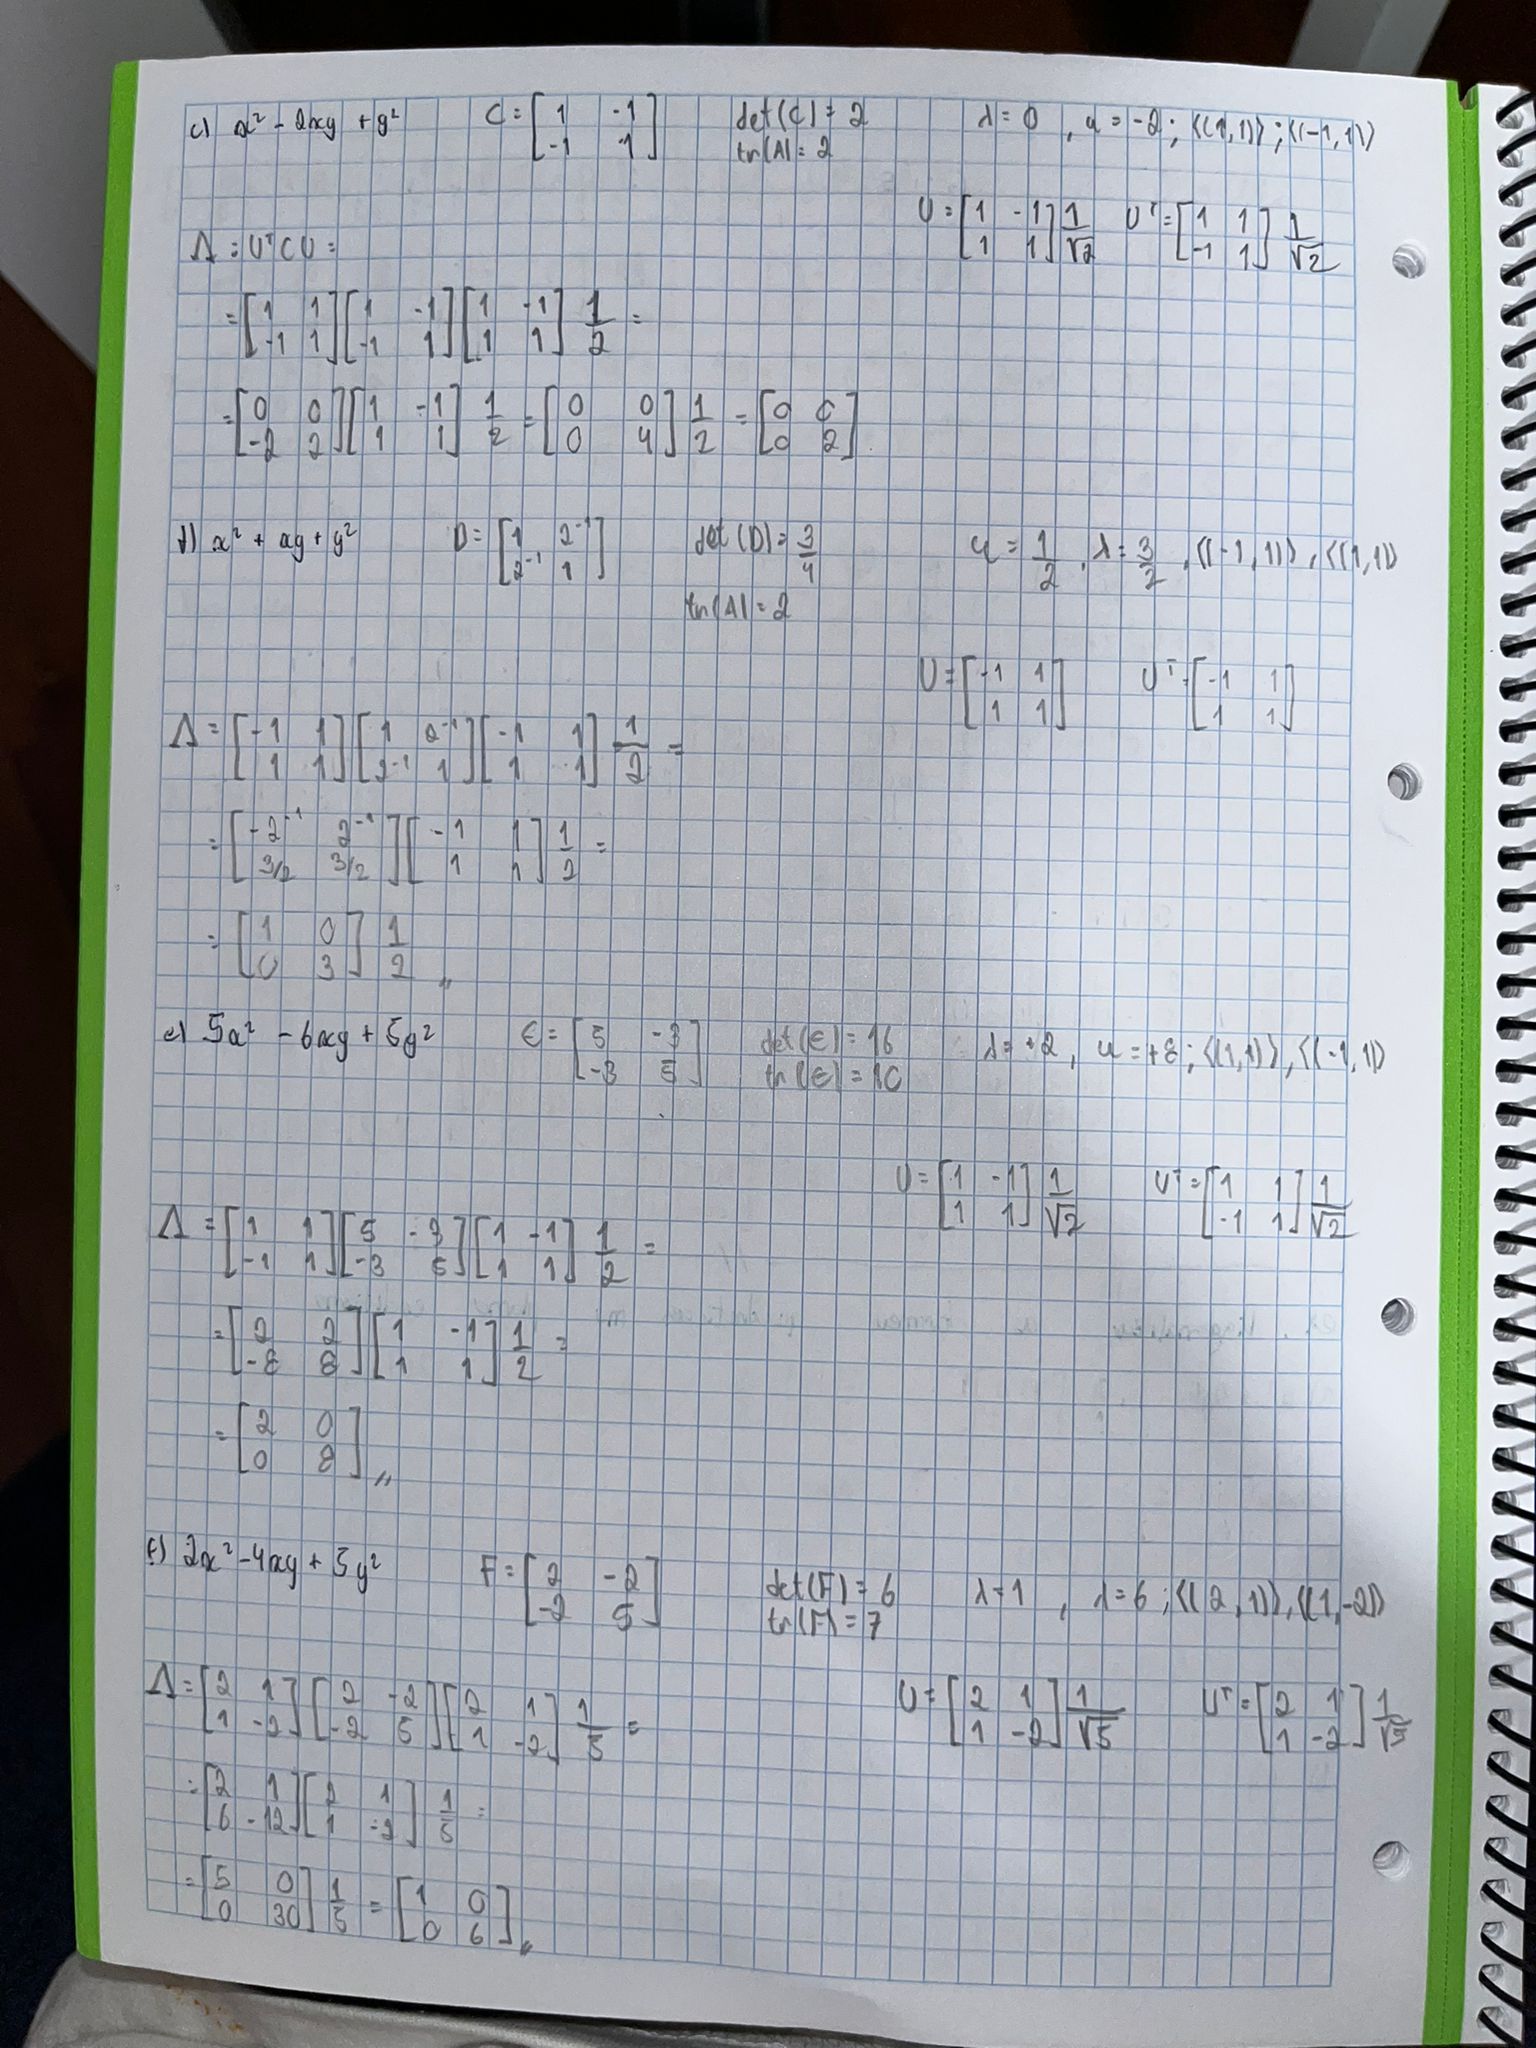 c) x² - 2xy + y² C = [1 -1; -1 1] det(C) = 2 λ = 0 , u = -2 ; ⟨(1,1)⟩ ; ⟨(-1,1)⟩
tr(A) = 2
U = [1 -1; 1 1] 1/√2 Uᵀ = [1 1; -1 1] 1/√2
Λ = UᵀCU =
= [1 1; -1 1] [1 -1; -1 1] [1 -1; 1 1] 1/2 =
= [0 0; -2 2] [1 -1; 1 1] 1/2 = [0 0; 0 4] 1/2 = [0 0; 0 2]
d) x² + xy + y² D = [1 2⁻¹; 2⁻¹ 1] det(D) = 3/4 u = 1/2 , λ = 3/2 , ⟨(-1,1)⟩ , ⟨(1,1)⟩
tr(A) = 2
U = [-1 1; 1 1] Uᵀ = [-1 1; 1 1]
Λ = [-1 1; 1 1] [1 2⁻¹; 2⁻¹ 1] [-1 1; 1 1] 1/2 =
= [-2⁻¹ 2⁻¹; 3/2 3/2] [-1 1; 1 1] 1/2 =
= [1 0; 0 3] 1/2 //
e) 5x² - 6xy + 5y² E = [5 -3; -3 5] det(E) = 16 λ = +2 , u = +8 ; ⟨(1,1)⟩ , ⟨(-1,1)⟩
tr(E) = 10
U = [1 -1; 1 1] 1/√2 Uᵀ = [1 1; -1 1] 1/√2
Λ = [1 1; -1 1] [5 -3; -3 5] [1 -1; 1 1] 1/2 =
= [2 2; -8 8] [1 -1; 1 1] 1/2 =
= [2 0; 0 8] //
f) 2x² - 4xy + 5y² F = [2 -2; -2 5] det(F) = 6 λ = 1 , λ = 6 ; ⟨(2,1)⟩ , ⟨(1,-2)⟩
tr(F) = 7
Λ = [2 1; 1 -2] [2 -2; -2 5] [2 1; 1 -2] 1/5 = U = [2 1; 1 -2] 1/√5 Uᵀ = [2 1; 1 -2] 1/√5
= [2 1; 6 -12] [2 1; 1 -2] 1/5 =
= [5 0; 0 30] 1/5 = [1 0; 0 6] //